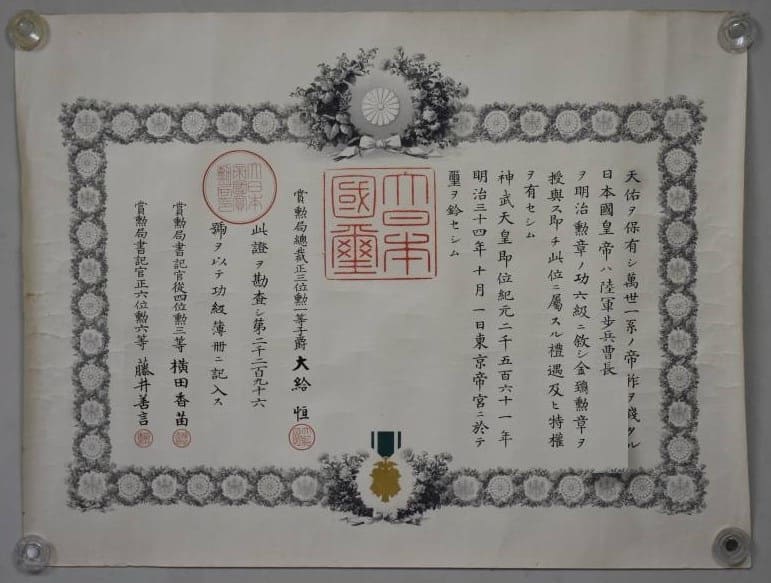 天佑ヲ保有シ萬世一系ノ帝祚ヲ踐タル
日本國皇帝ハ陸軍步兵曹長
ヲ明治勲章ノ功六級ニ敘シ金鵄勲章ヲ
授與ス即チ此位ニ屬スル禮遇及ヒ特權
ヲ有セシム
神武天皇即位紀元二千五百六十一年
明治三十四年十月一日東京帝宮ニ於テ
璽ヲ鈐セシム
大日本
國璽
賞勲局總裁正三位勲一等子爵大給恒
此證ヲ勘查シ第二千二百九十六
號ヲ以テ功級簿冊ニ記入ス
大日本帝國賞勳局印
賞勲局書記官從四位勲三等横田香苗
賞勲局書記官正六位勲六等藤井善言